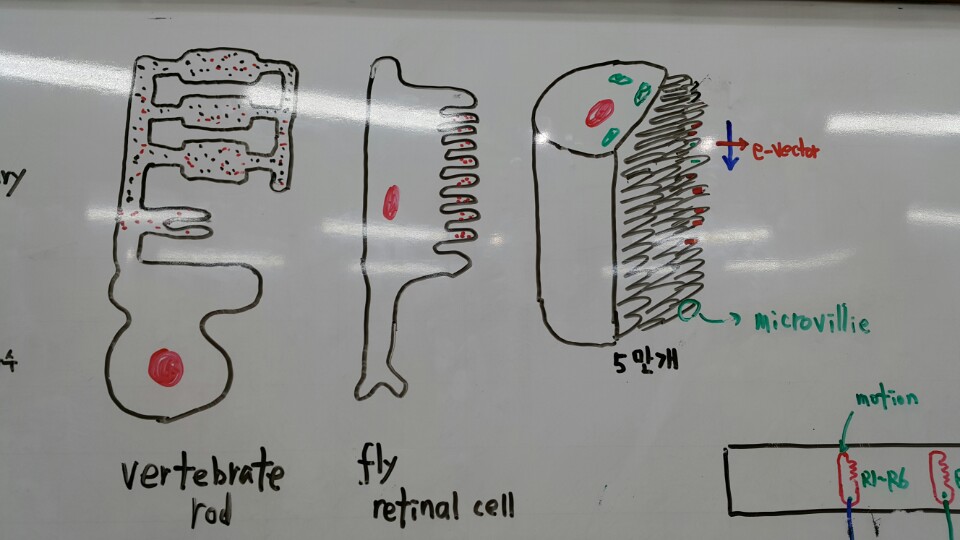 ry
e-vector
microvillie
5만개
수
vertebrate
rod
fly
retinal cell
motion
R1~R6